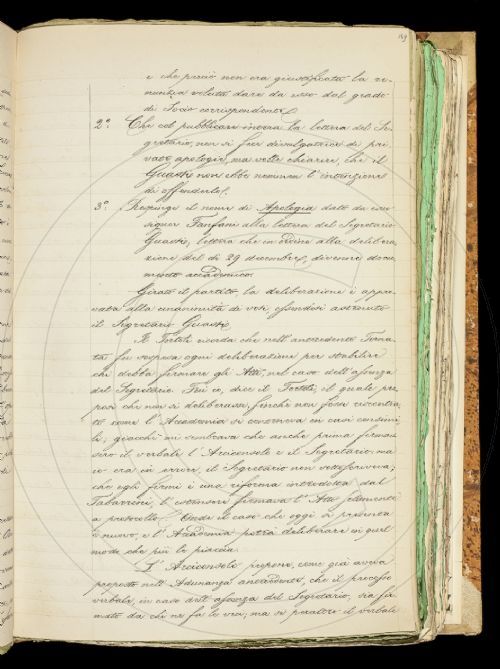 149
e che perciò non era giustificata la re-
nunzia voluta dare da esso dal grado
di Socio corrispondente.
2.° Che col pubblicare intera la lettera del Se-
gretario, non si fece divulgatrice di pri-
vate apologie, ma volle chiarire, che il
Guasti non ebbe nemmen l'intenzione
di offenderlo.
3.° Respinge il nome di Apologia dato da esso
signor Fanfani alla lettera del Segretario
Guasti, lettera che in ordine alla delibera-
zione del dì 29 decembre, divenne docu-
mento accademico.
Girato il partito, la deliberazione è appro-
vata alla unanimità di voti, essendosi astenuto
il Segretario Guasti.
Il Tortoli ricorda che nell'antecedente Torna-
ta fu sospesa ogni deliberazione per stabilire
chi debba firmare gli Atti, nel caso dell'assenza
del Segretario. Fui io, dice il Tortoli, il quale pro-
posi che non si deliberasse, finchè non fosse riscontra-
to come l'Accademia si conteneva in casi consimi-
li, giacchè mi sembrava che anche prima firmas-
sero il verbale l'Arciconsolo e il Segretario: ma
io era in errore, il Segretario non sottoscriveva;
che egli firmi è una riforma introdotta dal
Tabarrini, l'estensore firmava l'Atto solamente
a protocollo. Onde il caso che oggi si presenta
è nuovo, e l'Accademia potrà deliberare in quel
modo che più le piaccia.
L'Arciconsolo propone, come già aveva
proposto nell'Adunanza antecedente, che il processo
verbale, in caso dell'assenza del Segretario, sia fir-
mato da chi ne fa le veci; ma se peraltro il verbale